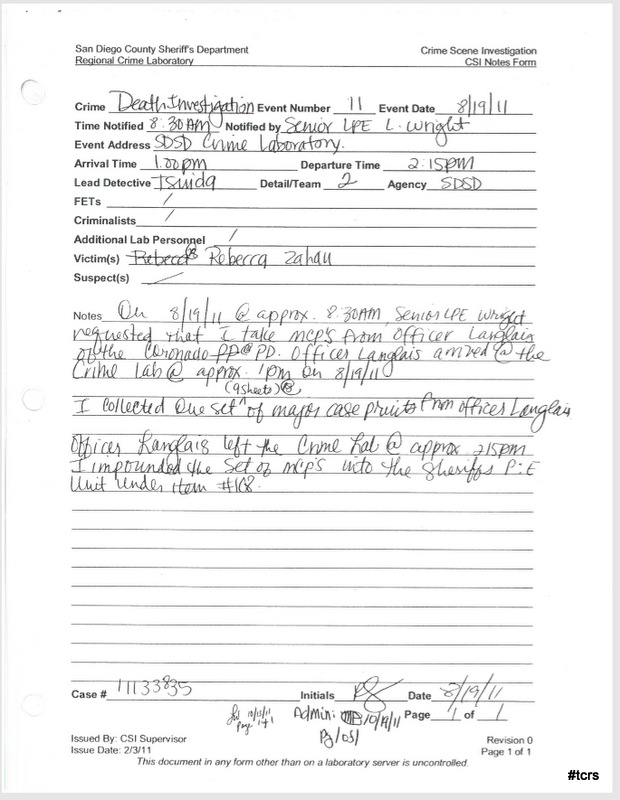 San Diego County Sheriff's Department Crime Scene Investigation
Regional Crime Laboratory CSI Notes Form
Crime Death Investigation Event Number 11 Event Date 8/19/11
Time Notified 8:30AM Notified by Senior LPE L. Wright
Event Address SDSD Crime Laboratory.
Arrival Time 1:00pm Departure Time 2:15PM
Lead Detective Tsuida Detail/Team 2 Agency SDSD
FETs /
Criminalists /
Additional Lab Personnel /
Victim(s) Rebecca Rebecca Zahau
Suspect(s)
Notes On 8/19/11 @ approx. 8:30AM, Senior LPE Wright
requested that I take MCP's from Officer Langlais
of the Coronado PD PD. Officer Langlais arrived @ the
Crime Lab @ approx. 1pm on 8/19/11
(9 sheets)
I collected one set of major case prints from officer Langlais
Officer Langlais left the Crime Lab @ approx 215pm
I impounded the set of MCP's into the Sheriffs P:E
Unit under item #168.
Case # 11133835 Initials Date 8/19/11
10/15/11 Admin: 10/19/11 Page 1 of 1
page 1 of 1
Issued By: CSI Supervisor Revision 0
Issue Date: 2/3/11 Page 1 of 1
This document in any form other than on a laboratory server is uncontrolled.
#tcrs